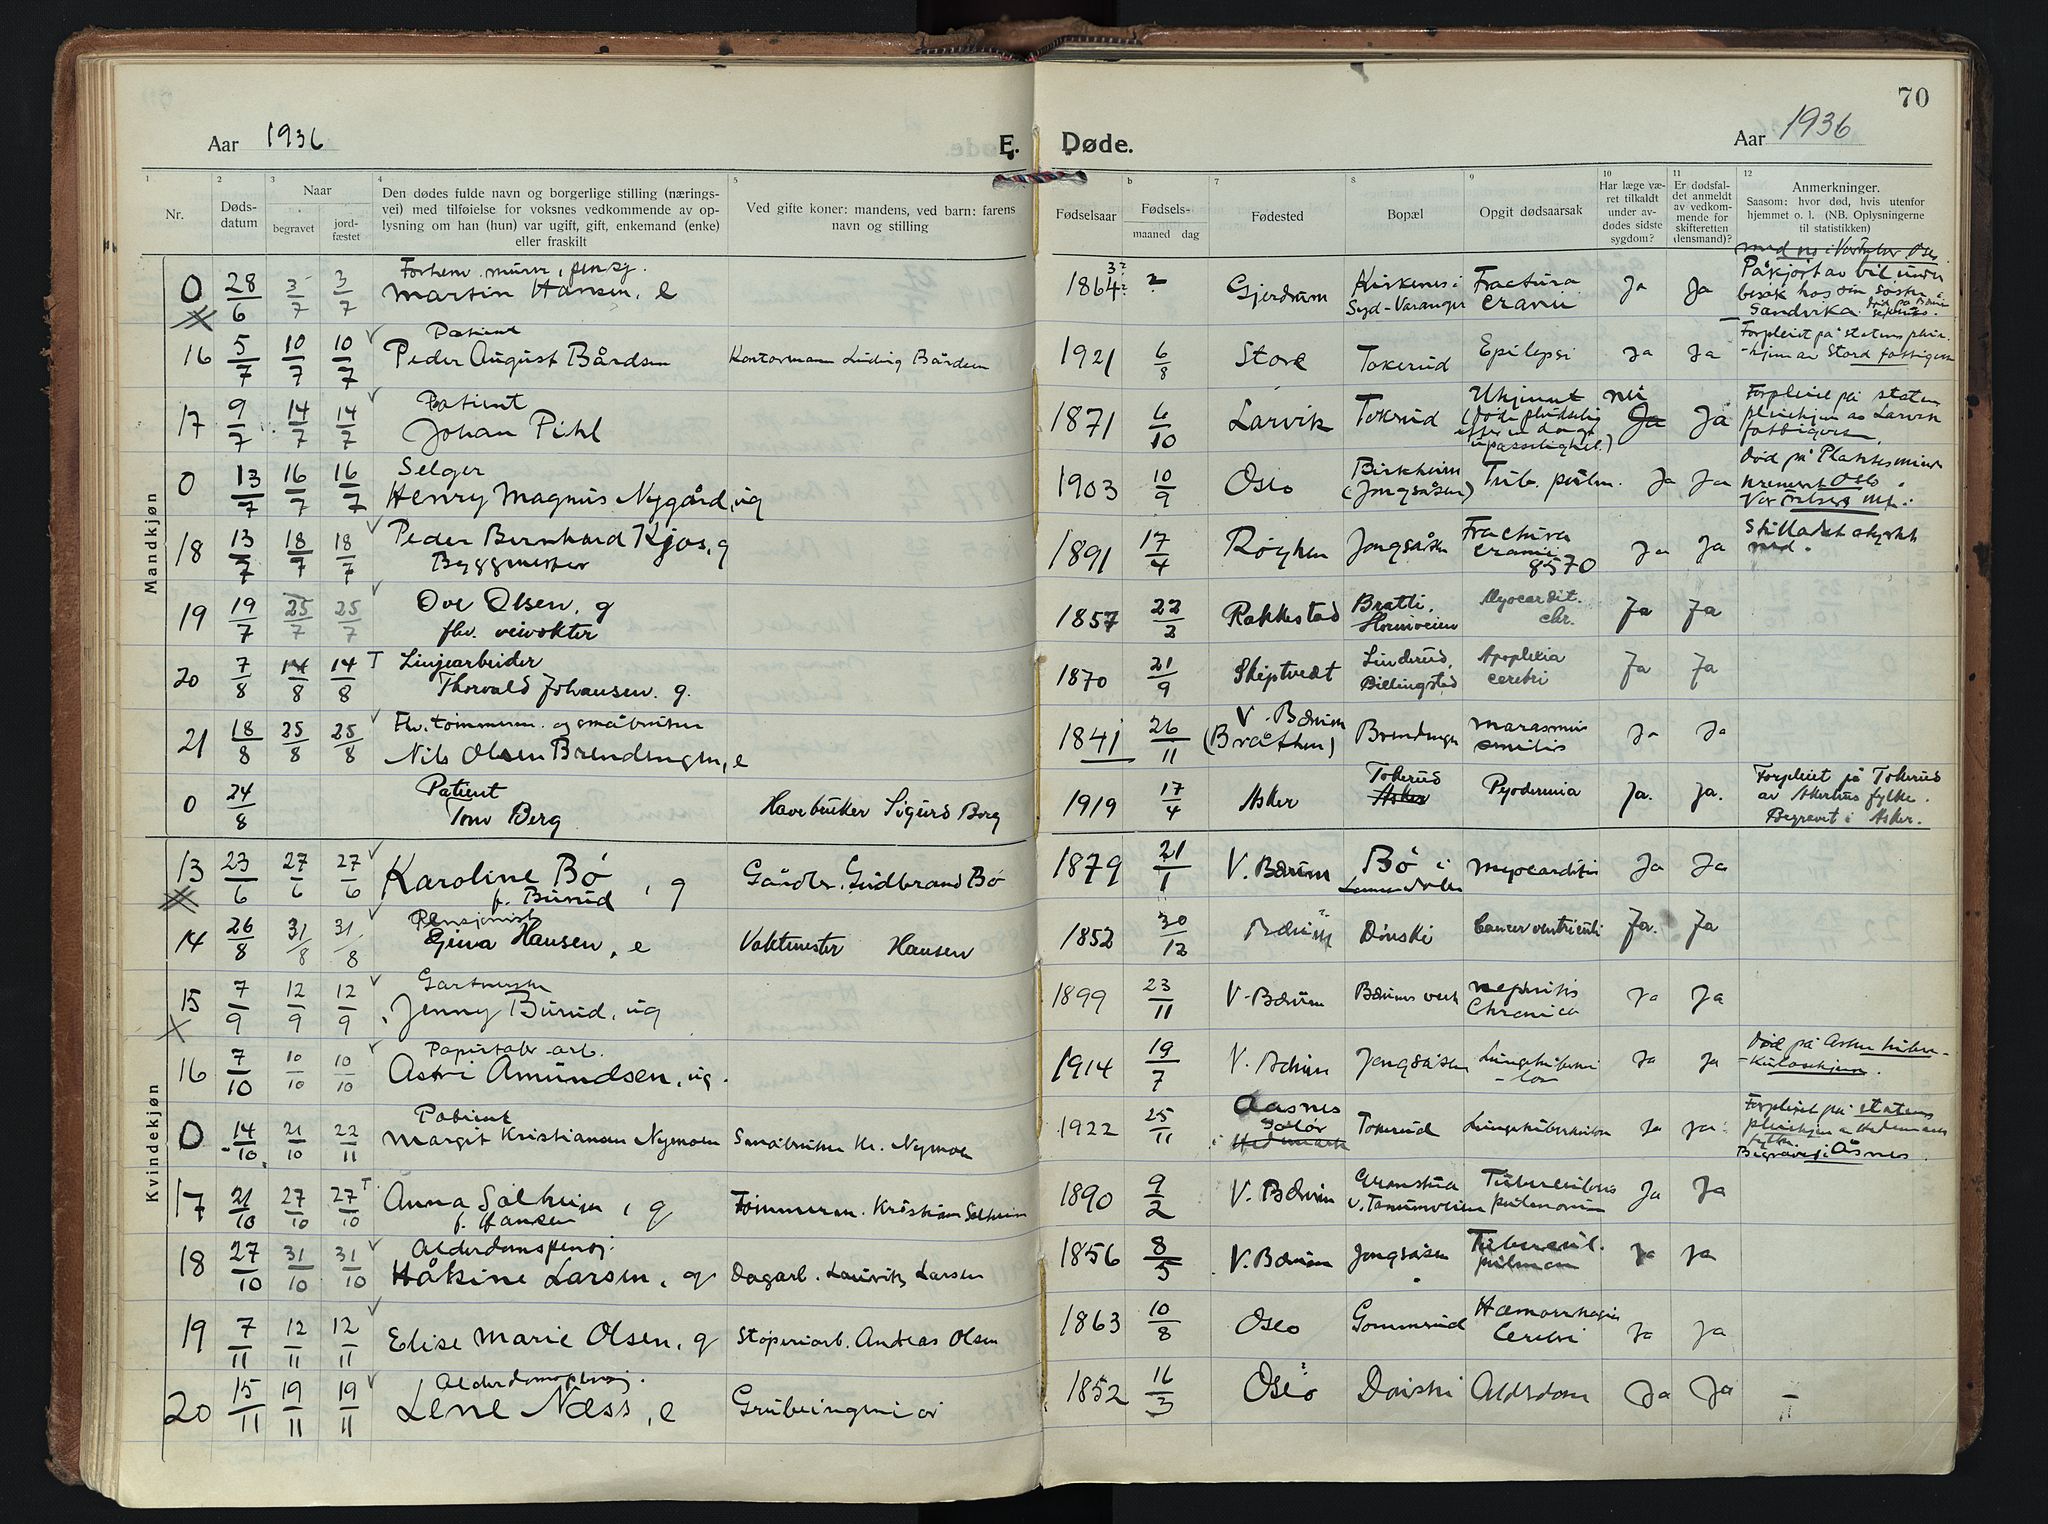 70
Aar 1936
E. Døde.
Aar 1936
1 2 3 4 5 b 7 8 9 10 11 12
Nr.
Dødsdatum
Naar
begravet
jordfæstet
Den dødes fulde navn og borgerlige stilling (næringsvei) med tilføielse for voksnes vedkommende av oplysning om han (hun) var ugift, gift, enkemand (enke) eller fraskilt
Ved gifte koner: mandens, ved barn: farens navn og stilling
Fødselsaar
Fødselsmaaned dag
Fødested
Bopæl
Opgit dødsaarsak
Har læge været tilkaldt under avdødes sidste sygdom?
Er dødsfaldet anmeldt av vedkommende for skifteretten (lensmand)?
Anmerkninger.
Saasom: hvor død, hvis utenfor hjemmet o. l. (NB. Oplysningerne til statistikken)
Mandkjøn
0 28/6 3/7 3/7 Martin Hansen, e 1864 Gjerdrum Kirkenes i Syd-Varanger Fractura cranii Ja Ja Påkjørt av bil under besøk hos sin søster i Sandvika.
16 5/7 10/7 10/7 Patient Peder August Bårdsen Kontormann Ludvig Bårdsen 1921 6/8 Stord Tokerud Epilepsi Ja Ja Forpleiet på statens pleie-hjem av Stord fattigvesen
17 9/7 14/7 14/7 Patient Johan Pihl 1871 6/10 Larvik Tokerud Ukjent nei Ja Ja Forpleiet på statens pleiehjem av Larvik fattigvesen.
0 13/7 16/7 16/7 Selger Henry Magnus Nygård, ug 1903 10/9 Oslo Birkheim (Jongsåsen) Tub. pulm. Ja Ja
18 13/7 18/7 18/7 Peder Bernhard Kjos, g Byggmester 1891 17/4 Røyken Jongsåsen Fractura cranii 8570 Ja Ja
19 19/7 25/7 25/7 Ove Olsen, g fhv. veivokter 1857 22/2 Rakkestad Bratli. Myocardit. chr. Ja Ja
20 7/8 14/8 14/8 T Linjearbeider Thorvald Johansen. g. 1870 21/9 Skiptvedt Linderud, Billingstad Apoplexia cerebri Ja Ja
21 18/8 25/8 25/8 Fhv. tømmerm. og småbruker Nils Olsen Brendengen, e 1841 26/11 V. Bærum (Bråthen) Brendengen marasmus senilis Ja Ja
0 24/8 Patient Tom Berg Havebruker Sigurd Berg 1919 17/4 Asker Tokerud Asker Pyodermia Ja. Ja. Forpleiet på Tokerud av Akershus fylke. Begravet i Asker.
Kvindekjøn
13 23/6 27/6 27/6 Karoline Bø, g f. Burud Gårdbr. Gudbrand Bø 1879 21/1 V. Bærum Bø i Lommedalen myocarditis Ja Ja
14 26/8 31/8 31/8 Pensjonist Gina Hansen, e Vaktmester Hansen 1852 30/12 Bærum Dønski Cancer ventriculi Ja. Ja
15 7/9 12/9 12/9 Jenny Burud, ug 1899 23/11 V. Bærum Bærums verk nephritis Chronica Ja Ja
16 7/10 10/10 10/10 Papirfabr.-arb. Astri Amundsen, ug. 1914 19/7 V. Bærum Jongsåsen Ja Ja Død på Asker tuber-kuloschjem.
0 14/10 21/10 22/11 Patient Margit Kristiansen Nymoen Småbruker Kr. Nymoen 1922 25/11 Aasnes Solør i Hedemark Tokerud Lungetuberkulose Ja Ja Forpleiet på statens pleiehjem av Hedemark fylke. Begravet i Åsnes.
17 21/10 27/10 27/10 T Anna Solheim, g f. Hansen Tømmerm. Kristian Solheim 1890 9/2 V. Bærum v. Tanumveien Tuberculosis pulmonum Ja Ja
18 27/10 31/10 31/10 Alderdomspensj. Håkine Larsen, g Dagarb. Lauritz Larsen 1856 8/5 V. Bærum Jongsåsen Tubercul. pulmon Ja Ja
19 7/11 12/11 12/11 Elise Marie Olsen, g Støperiarb. Andreas Olsen 1863 10/8 Oslo Gommerud Hæmorrhagia Cerebri Ja Ja
20 15/11 19/11 19/11 Alderdomspensj. Lene Næss, e Grubeingeniør 1852 16/3 Oslo Dønski Alderdom Ja Ja